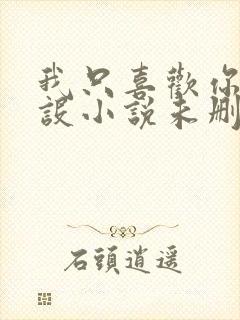 我只喜歡你
設小說未刪
石頭逍遥